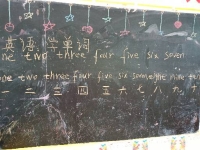 英语 学单词
one two three four five six seven
one two three four five six seven eight nine ten
一 二 三 四 五 六 七 八 九 十